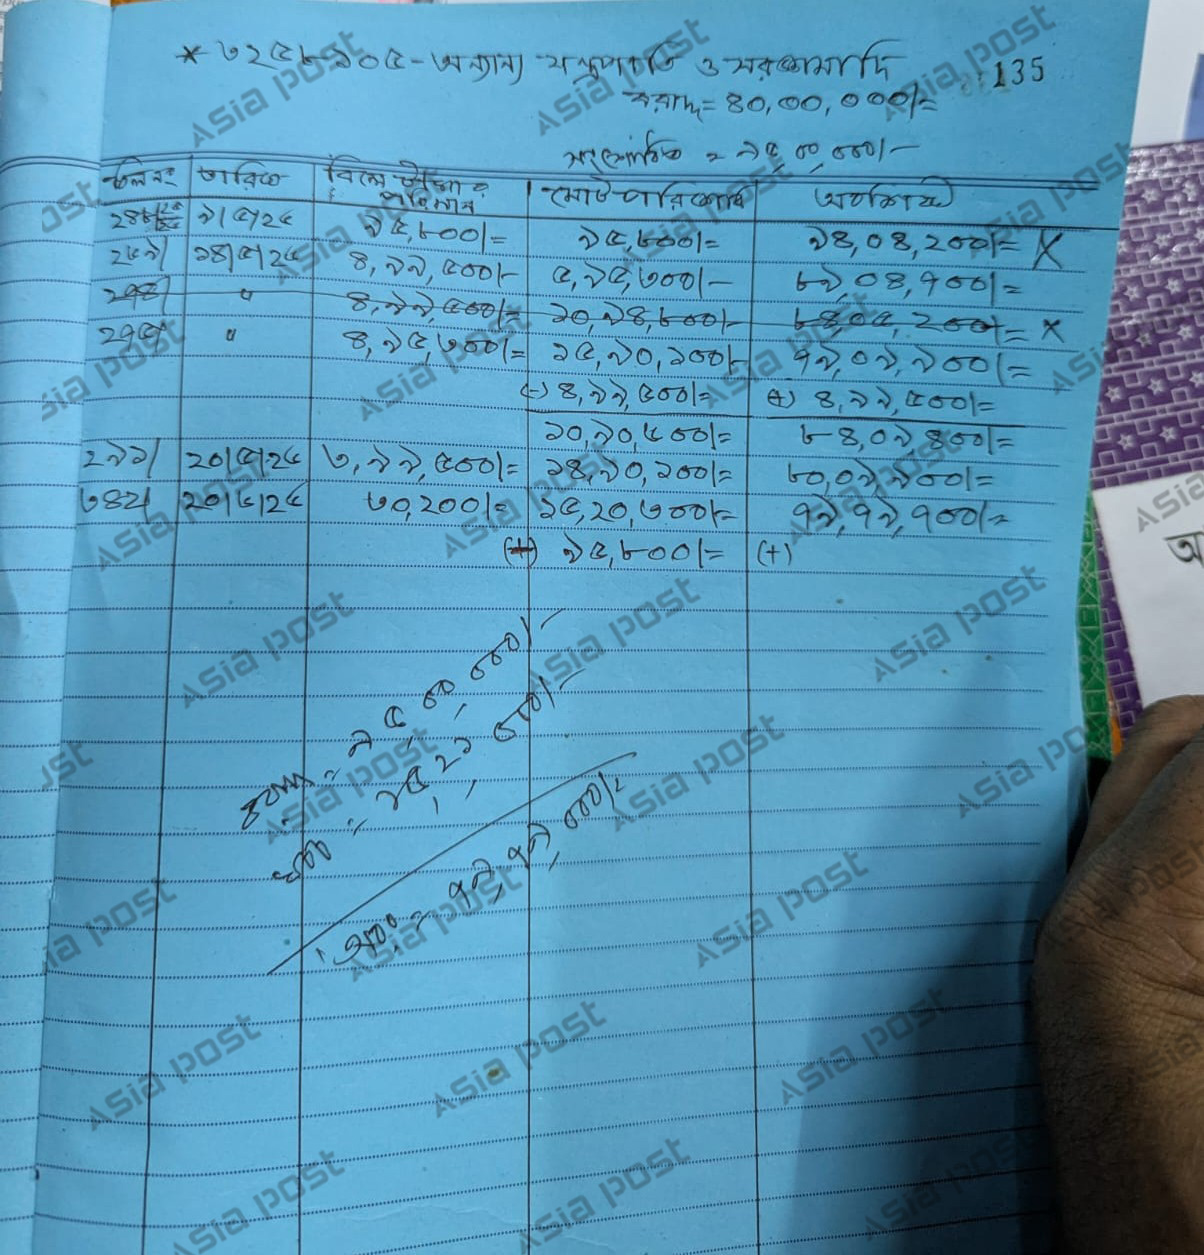 135
* ৩২৫৮১০৫ - অন্যান্য যন্ত্রপাতি ও সরঞ্জামাদি
বরাদ্দ = ৪০,০০,০০০/=
সংশোধিত = ৯৫,০০,০০০/-
তারিখ বিলে টাকার পরিমান মোট পরিশোধ অবশিষ্ট
৯/৫/২৫ ৯৫,৮০০/= ৯৫,৮০০/= ৯৪,০৪,২০০/= X
২৫৯/ ১৪/৫/২৫ ৪,৯৯,৫০০/- ৫,৯৫,৩০০/- ৮৯,০৪,৭০০/=
২৭৪/ " ৪,৯৯,৫০০/= ১০,৯৪,৮০০/- ৮৪,০৫,২০০/= X
২৭৫/ " ৪,৯৫,৩০০/= ১৫,৯০,১০০/- ৭৯,০৯,৯০০/=
(-) ৪,৯৯,৫০০/= (+) ৪,৯৯,৫০০/=
১০,৯০,৬০০/= ৮৪,০৯,৪০০/=
২৯১/ ২০/৫/২৫ ৩,৯৯,৫০০/= ১৪,৯০,১০০/= ৮০,০৯,৯০০/=
৩৪২/ ২০/৫/২৫ ৩০,২০০/= ১৫,২০,৩০০/= ৭৯,৭৯,৭০০/=
(+) ৯৫,৮০০/= (+)
= ৯৫,০০,০০০/-
= ১৫,২১,০০০/-
= ৭৯,৭৯,০০০/=
Asia Post